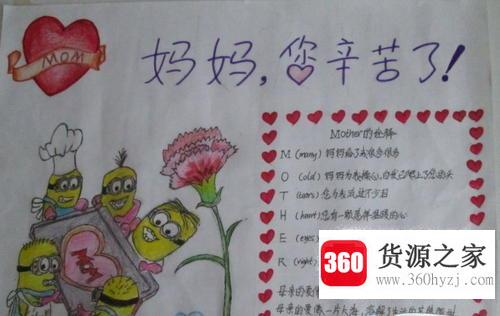 MOM
妈妈，您辛苦了！
Mother的诠释
M (many) 妈妈给了我很多很多
O (old) 妈妈为我操心，白发已爬上了您的头
T (tears) 您为我流过不少泪
H (heart) 您有一颗慈祥温暖的心
E (eyes)
R (right)
MOM
母亲的爱
母亲的爱像一片大海，
360 货源之家
www.360hyzj.com